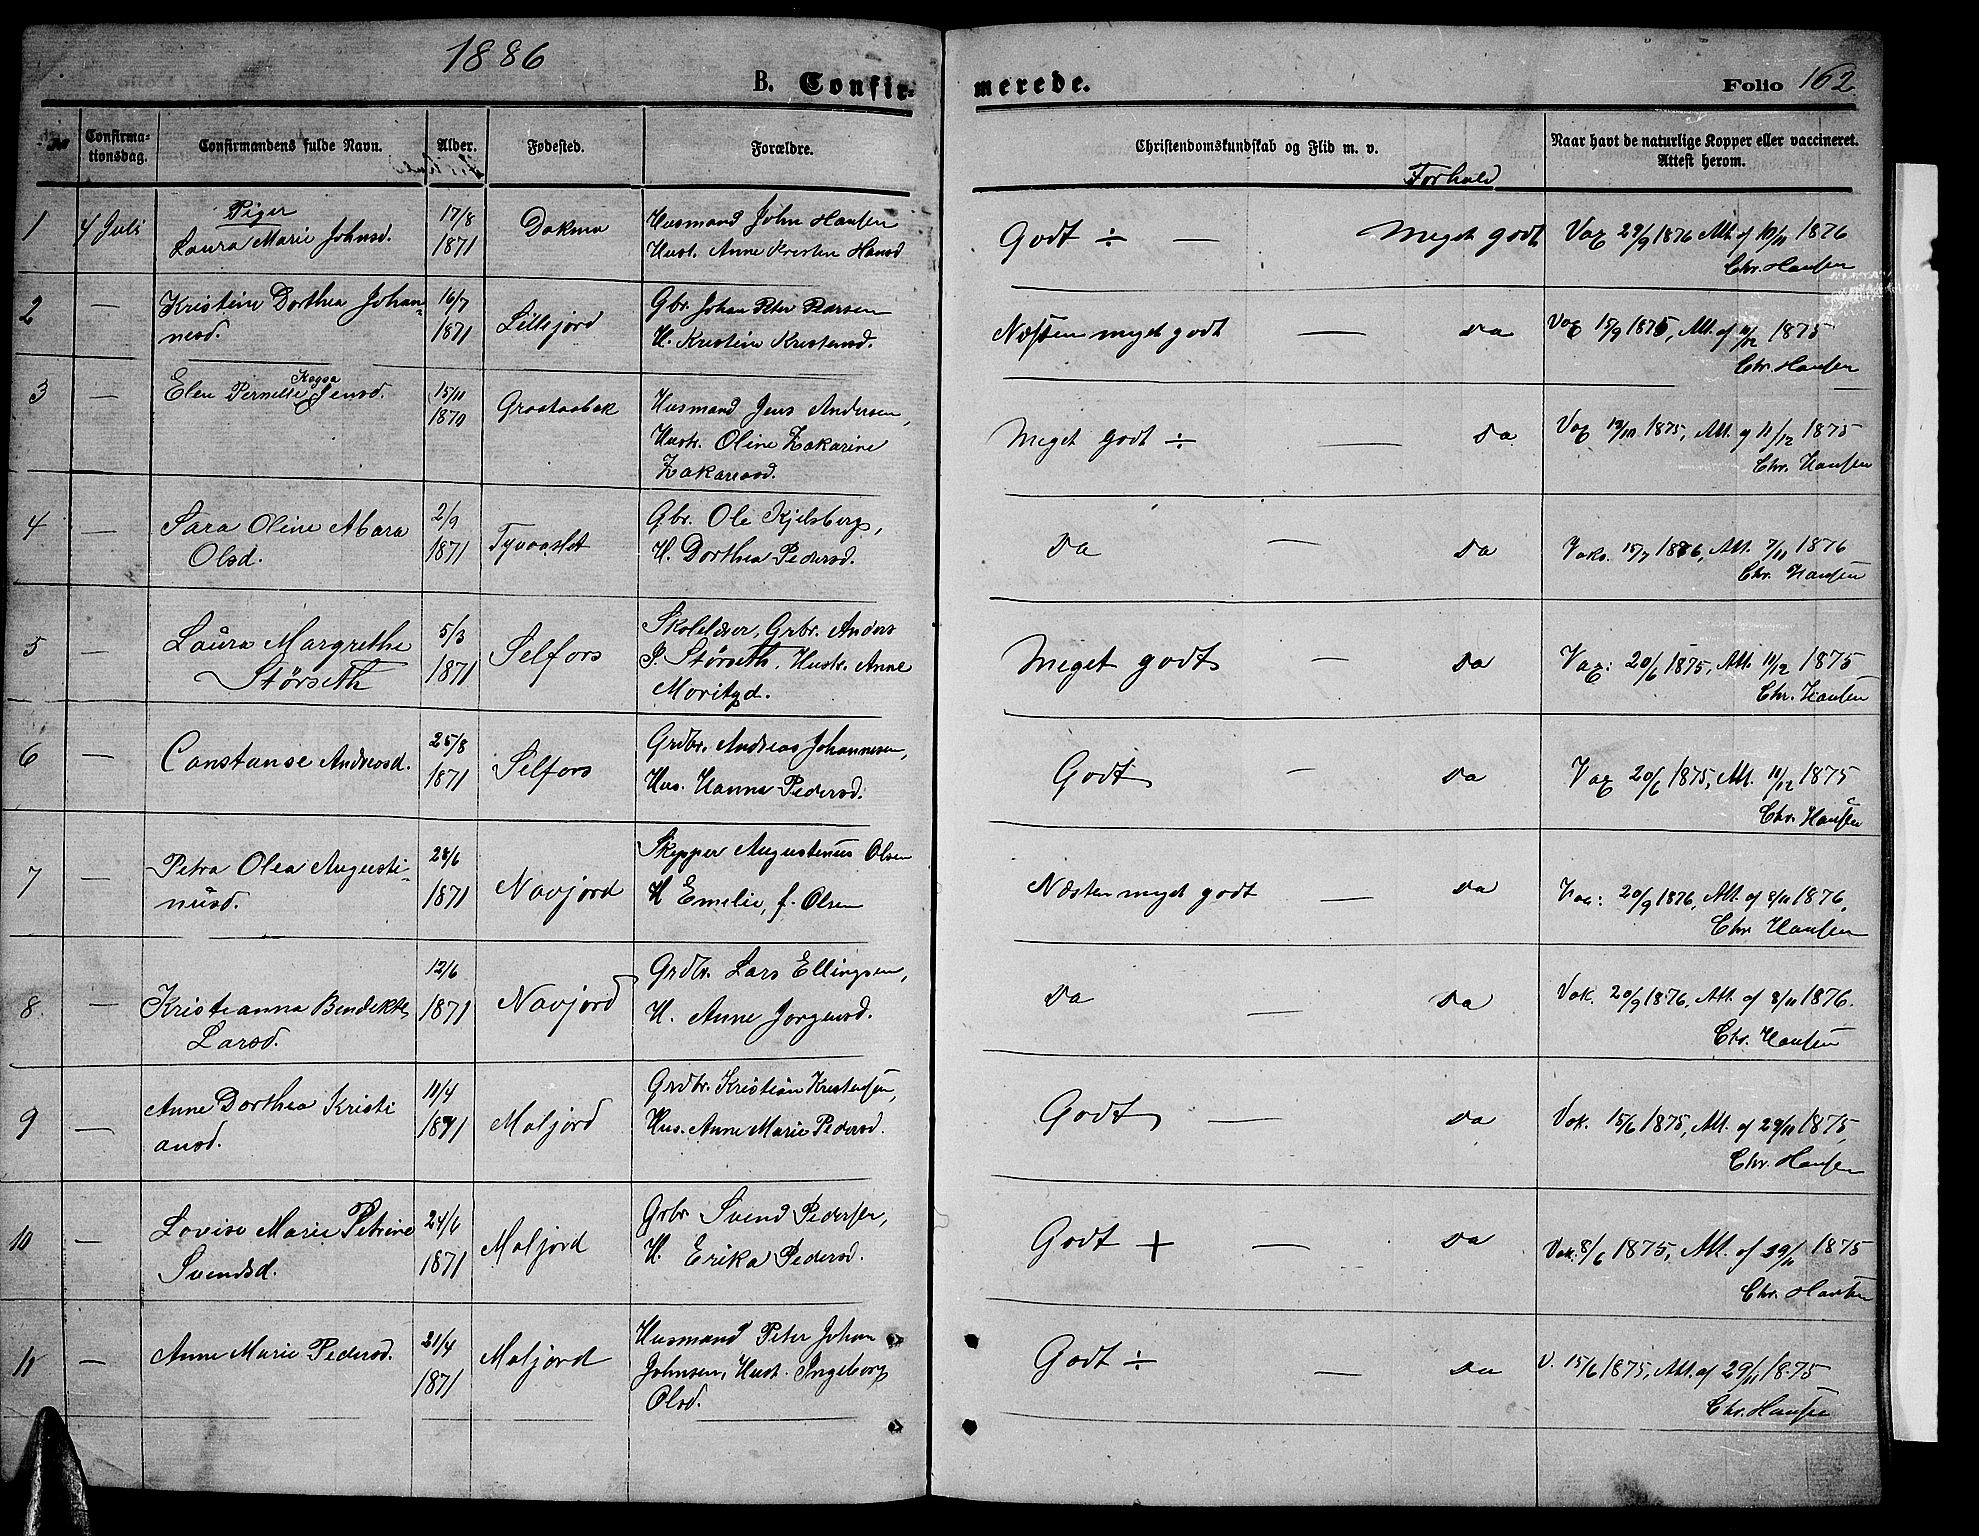 1886
B. Confirmerede.
Folio 162
No Confirmationsdag. Confirmandens fulde Navn. Alder. Fødested. Forældre. Christendomskundskab og Flid m. v. Forhold Naar havt de naturlige Kopper eller vaccineret. Attest herom.
Piger
1 4 Juli Laura Marie Johnsd. 17/8 1871 Husmand John Hansen
Hust. Anne Kristen Hansd Godt ÷ — Meget godt Vax 29/9 1876 Att. af 10/11 1876
Chr. Hansen
2 — Kristine Dorthea Johan-
nesd. 16/7 1871 Lillejord Gbr. Johan Peter Pedersen
H. Kristine Kristensd. Næsten meget godt — Do Vax 15/9 1875, Att. af 11/12 1875
Chr. Hansen
3 — Elen Pernelle Kagsa Jensd. 15/11 1870 Graataabak Husmand Jens Andersen,
Hustr. Oline Zakarine
Zakariasd. Meget godt ÷ — Do Vax 1875, Att. af 11/12 1875
Chr. Hansen
4 — Sara Oline Abara
Olsd. 2/9 1871 Gbr. Ole Kjelsberg,
H. Dorthea Pedersd. Do — Do Vaks. 15/7 1876, Att. 7/11 1876
Chr. Hansen
5 — Laura Margrethe
Størseth 5/3 1871 Selfors Skolelærer, Grbr. Anders
P. Størseth, Hustr. Anne
Moritzd. Meget godt — Do Vax: 20/6 1875, Att. 11/12 1875
Chr. Hansen
6 — Constanse Andreasd. 25/8 1871 Selfors Grdbr. Andreas Johannesen,
Hus. Hanna Pedersd. Godt — Do Vax 20/6 1875, Att. 11/12 1875
Chr. Hansen
7 — Petra Olea Augusti-
nusd. 28/6 1871 Navjord Skipper Augustinus Olsen
H Emelie, f. Olsen Næsten meget godt — Do Vac: 20/9 1876, Att. af 8/11 1876,
Chr Hansen
8 — Kristianna Bendikte
Larsd. 12/6 1871 Navjord Grdbr. Lars Ellingsen,
H. Anne Jørgensd. Do — Do Vak. 20/9 1876. Att. af 8/11 1876.
Chr. Hansen
9 — Anne Dorthea Kristi
ansd. 11/4 1871 Moljord Grdbr. Kristian Kristensen,
Hus. Anne Marie Pedersd. Godt — Do Vak. 15/6 1875, Att. af 29/11 1875,
Chr. Hansen
10 — Lovise Marie Petrine
Svendsd. 24/6 1871 Moljord Grbr Svend Pedersen,
H. Erika Pedersd. Godt + — Do Vak. 8/6 1875, Att. af 29/11 1875
Chr. Hansen
11 — Anne Marie Pedersd. 21/4 1871 Moljord Husmand Peter Johan
Johnsen, Hust. Ingeborg
Olsd. Godt ÷ — Do V. 15/6 1875, Att. af 29/11 1875
Chr. Hansen